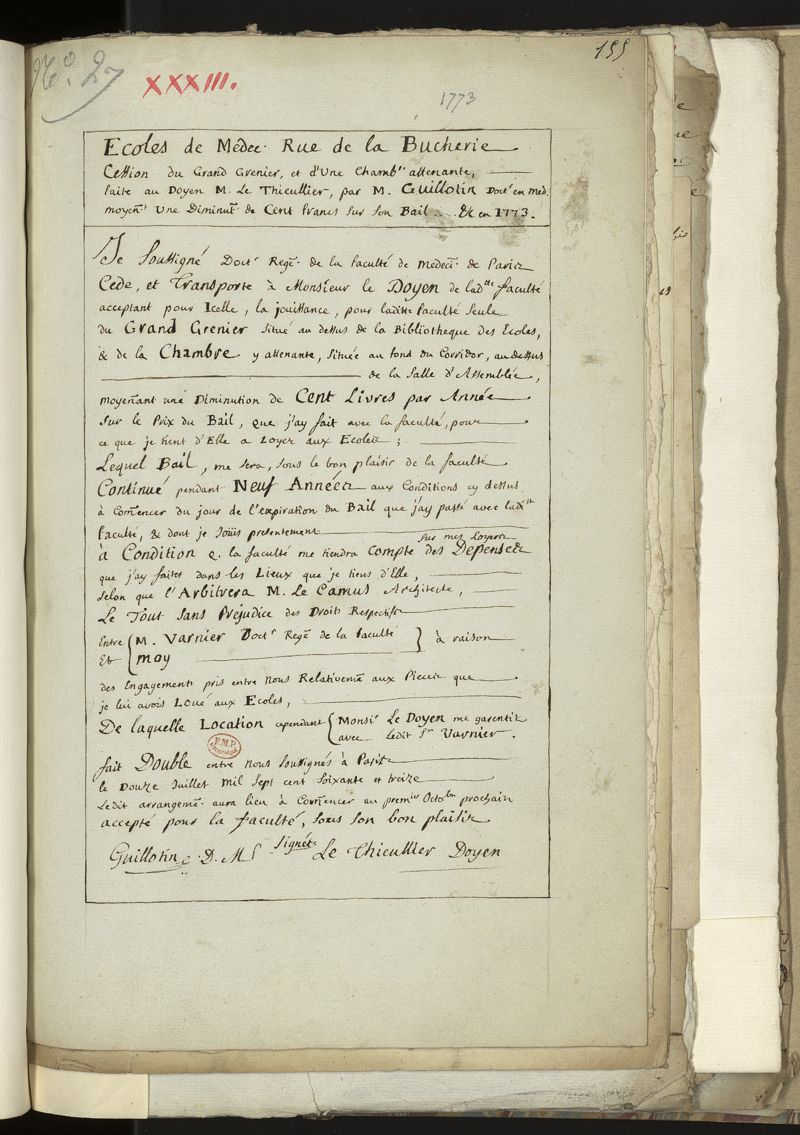 No. 27
XXXIII.
155
1773
Ecoles de Médec. Rue de la Bucherie
Cession du Grand Grenier, et d'Une Chambre attenante,
faite au Doyen M. Le Thieullier, par M. Guillotin Doct. en med.
moyent. Une Diminut. de Cent francs sur son Bail.... &c en 1773.
Je soussigné Doctr Regt. de la faculté de Medect. de Paris
Cede, et Transporte à Monsieur le Doyen de ladtte faculté
acceptant pour Icelle, la jouissance, pour laditte faculté seule
du Grand Grenier situé au dessus de la Bibliotheque des Ecoles,
& de la Chambre y attenante, située au fond du Corridor, au dessus
de la Salle d'Assemblée,
moyeñant une Diminution de Cent Livres par Année
sur le Prix du Bail, que j'ay fait avec la faculté, pour
ce que je tient d'Elle a Loyer aux Ecoles ;
Lequel Bail, me sera, sous le bon plaisir de la faculté
Continué pendant Neuf Années aux Conditions cy dessus
à Comencer du jour de l'expiration du Bail que j'ay passé avec ladtte
faculté, & dont je Joüis presentement
sur mes Loyers
à Condition q. la faculté me tiendra Compte des Depenses
que j'ay faites dans les Lieux que je tiens d'Elle,
selon que l'Arbitrera M. Le Camus Architecte,
Le Tout sans Préjudice des Droits Respectifs
Entre { M. Varnier Doctr Regt. de la faculté } à raison
Et { moy
des Engagements pris entre Nous Relativemt. aux Pieces que
je lui avois Loué aux Ecoles,
De laquelle Location cependant { Monsr Le Doyen me garentit
avec ledit Sr Varnier.
F.M.P.
fait Double entre nous soussignés à Paris
le Douze Juillet Mil Sept cent soixante et treize
Ledit arrangemt. aura lieu à Comencer au premier Octobre prochain
accepté pour la faculté, sous son bon plaisir
Signé
Guillotin D. M. P. Le Thieullier Doyen